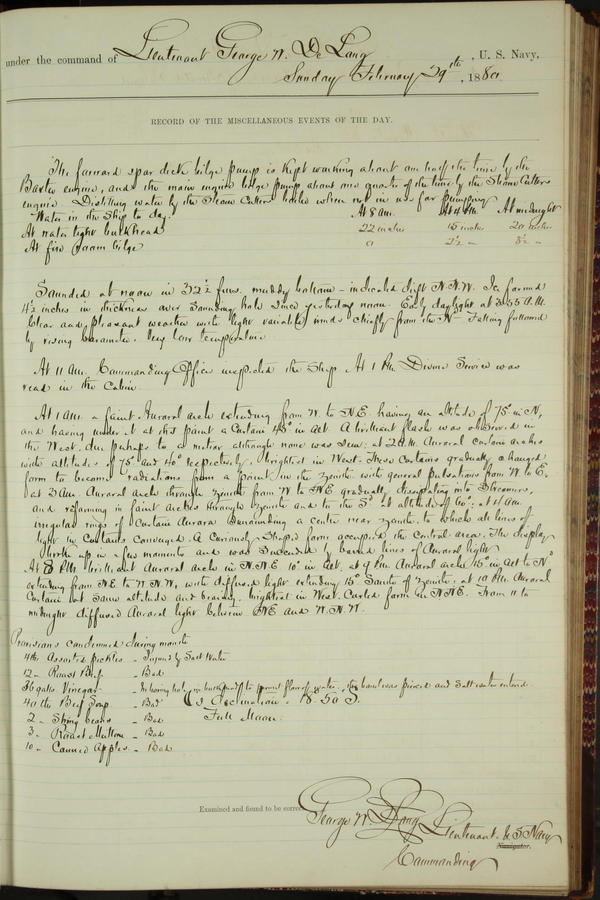 under the command of Lieutenant George W. De Long, U. S. Navy,
Sunday February 29th, 1880
RECORD OF THE MISCELLANEOUS EVENTS OF THE DAY.
The forward spar deck bilge pump is kept working about one half the time by the
Baxter engine, and the main engine bilge pump about one quarter of the time by the Steam Cutters
engine. Distilling water by the Steam Cutters boiler when not in use for pumping.
Water in the Ship to day. At 8 am. At 4 PM. At midnight
At water tight bulkhead 22 inches 15 inches 20 inches
At fire room bilge 0 2½ " 8½ "
Sounded at noon in 32½ fms. muddy bottom - indicated drift N.N.W. Ice formed
4½ inches in thickness over Sounding hole since yesterday noon. Early daylight at 3.55 A.M.
Clear and pleasant weather with light variable winds chiefly from the N. Falling followed
by rising barometer. Very low temperature
At 11 Am. Commanding Officer inspected the Ship. At 1 PM. Divine Service was
read in the Cabin
At 1 Am. a faint Auroral arch extending from W. to N.E. having an altitude of 75° in N,
and having under it at that point a Curtain 45° in alt. A brilliant flash was observed in
the West, due perhaps to a meteor although none was seen. at 2 A.M. Auroral Curtain arches
with altitudes of 75° and 40° respectively, brightest in West. These Curtains gradually changed
form to become radiations from a point in the zenith with general pulsations from W to E.
at 3 Am. Auroral arch through zenith from W to NE gradually dissipating into Streamers,
and reforming in faint arches through zenith and to the Sd. at altitude of 60°. at 4 am
irregular rings of Curtain Aurora surrounding a center near zenith. to which all lines of
light in Curtains Converged. A Curiously Shaped form occupied the Central area. The display
broke up in a few moments and was Succeeded by banded lines of Auroral light
At 8 PM. brilliant Auroral arch in N.N.E. 10° in alt. at 9 PM. Auroral arch 15° in alt to Nd
extending from NE. to W.N.W, with diffused light extending 15° South of Zenith. at 10 PM. Auroral
Curtain at Same altitude and bearing, brightest in West. Curled form in N.N.E. From 11 to
midnight diffused Auroral light between NE and W.N.W.
Provisions condemned during month
4 lbs Assorted pickles - Injured by Salt Water
12 " Roast Beef - Bad
36 galls Vinegar - In boring hole in bulkhead to permit flow of water, the barrel was pierced and Salt water entered
40 lbs Beef Soup - Bad
☾s Declination - 18° 50' S.
2 " String beans - Bad
Full Moon.
3 " Roast Mutton - Bad
10 " Canned Apples - Bad
Examined and found to be correct.
George W. De Long Lieutenant U.S. Navy
Navigator.
Commanding